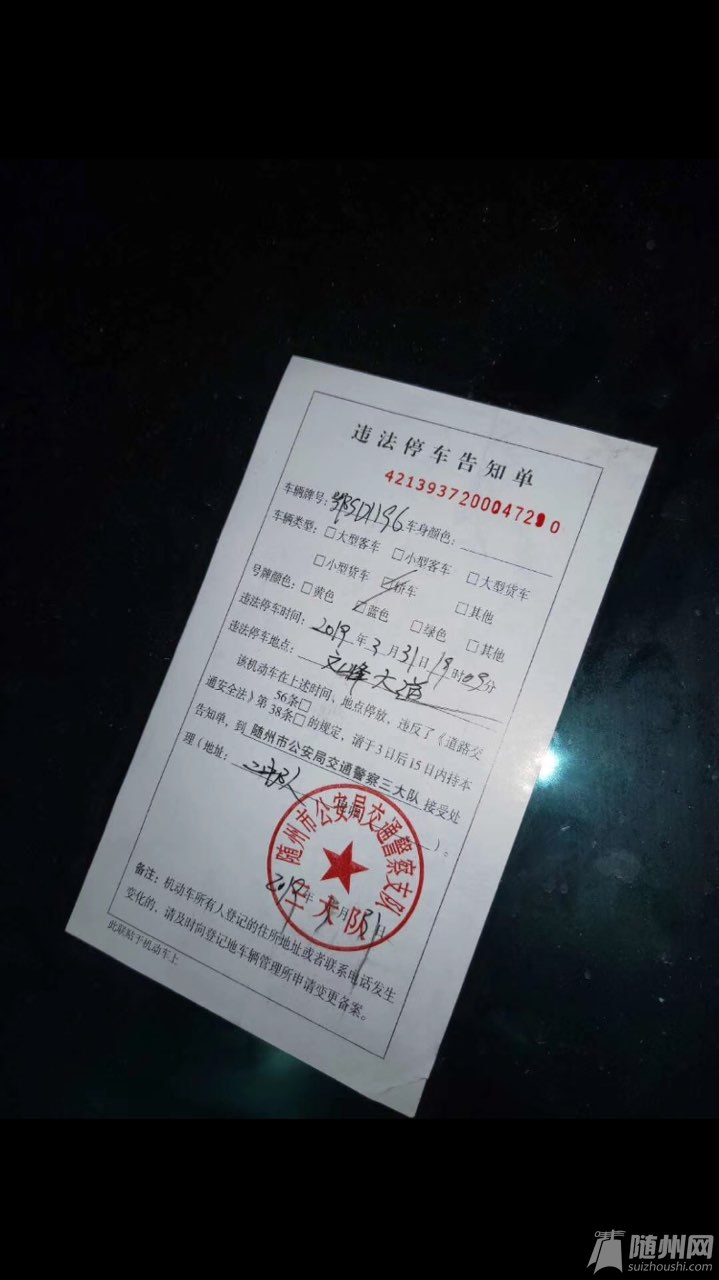 违法停车告知单
4213937200047210
车辆牌号：鄂SD1196 车身颜色：
车辆类型：□大型客车 □小型客车 □大型货车
□小型货车 □轿车 □其他
号牌颜色：□黄色 □蓝色 □绿色 □其他
违法停车时间：2019年3月31日19时09分
违法停车地点：文峰大道
该机动车在上述时间、地点停放，违反了《道路交
通安全法》第56条□ 38条□的规定，请于3日后15日内持本
告知单，到 随州市公安局交通警察三大队 接受处
理（地址：三大队）。
随州市公安局交通警察支队
三大队
2019年3月31日
备注：机动车所有人登记的住所地址或者联系电话发生
变化的，请及时向登记地车辆管理所申请变更备案。
此联贴于机动车上
随州网
suizhoushi.com